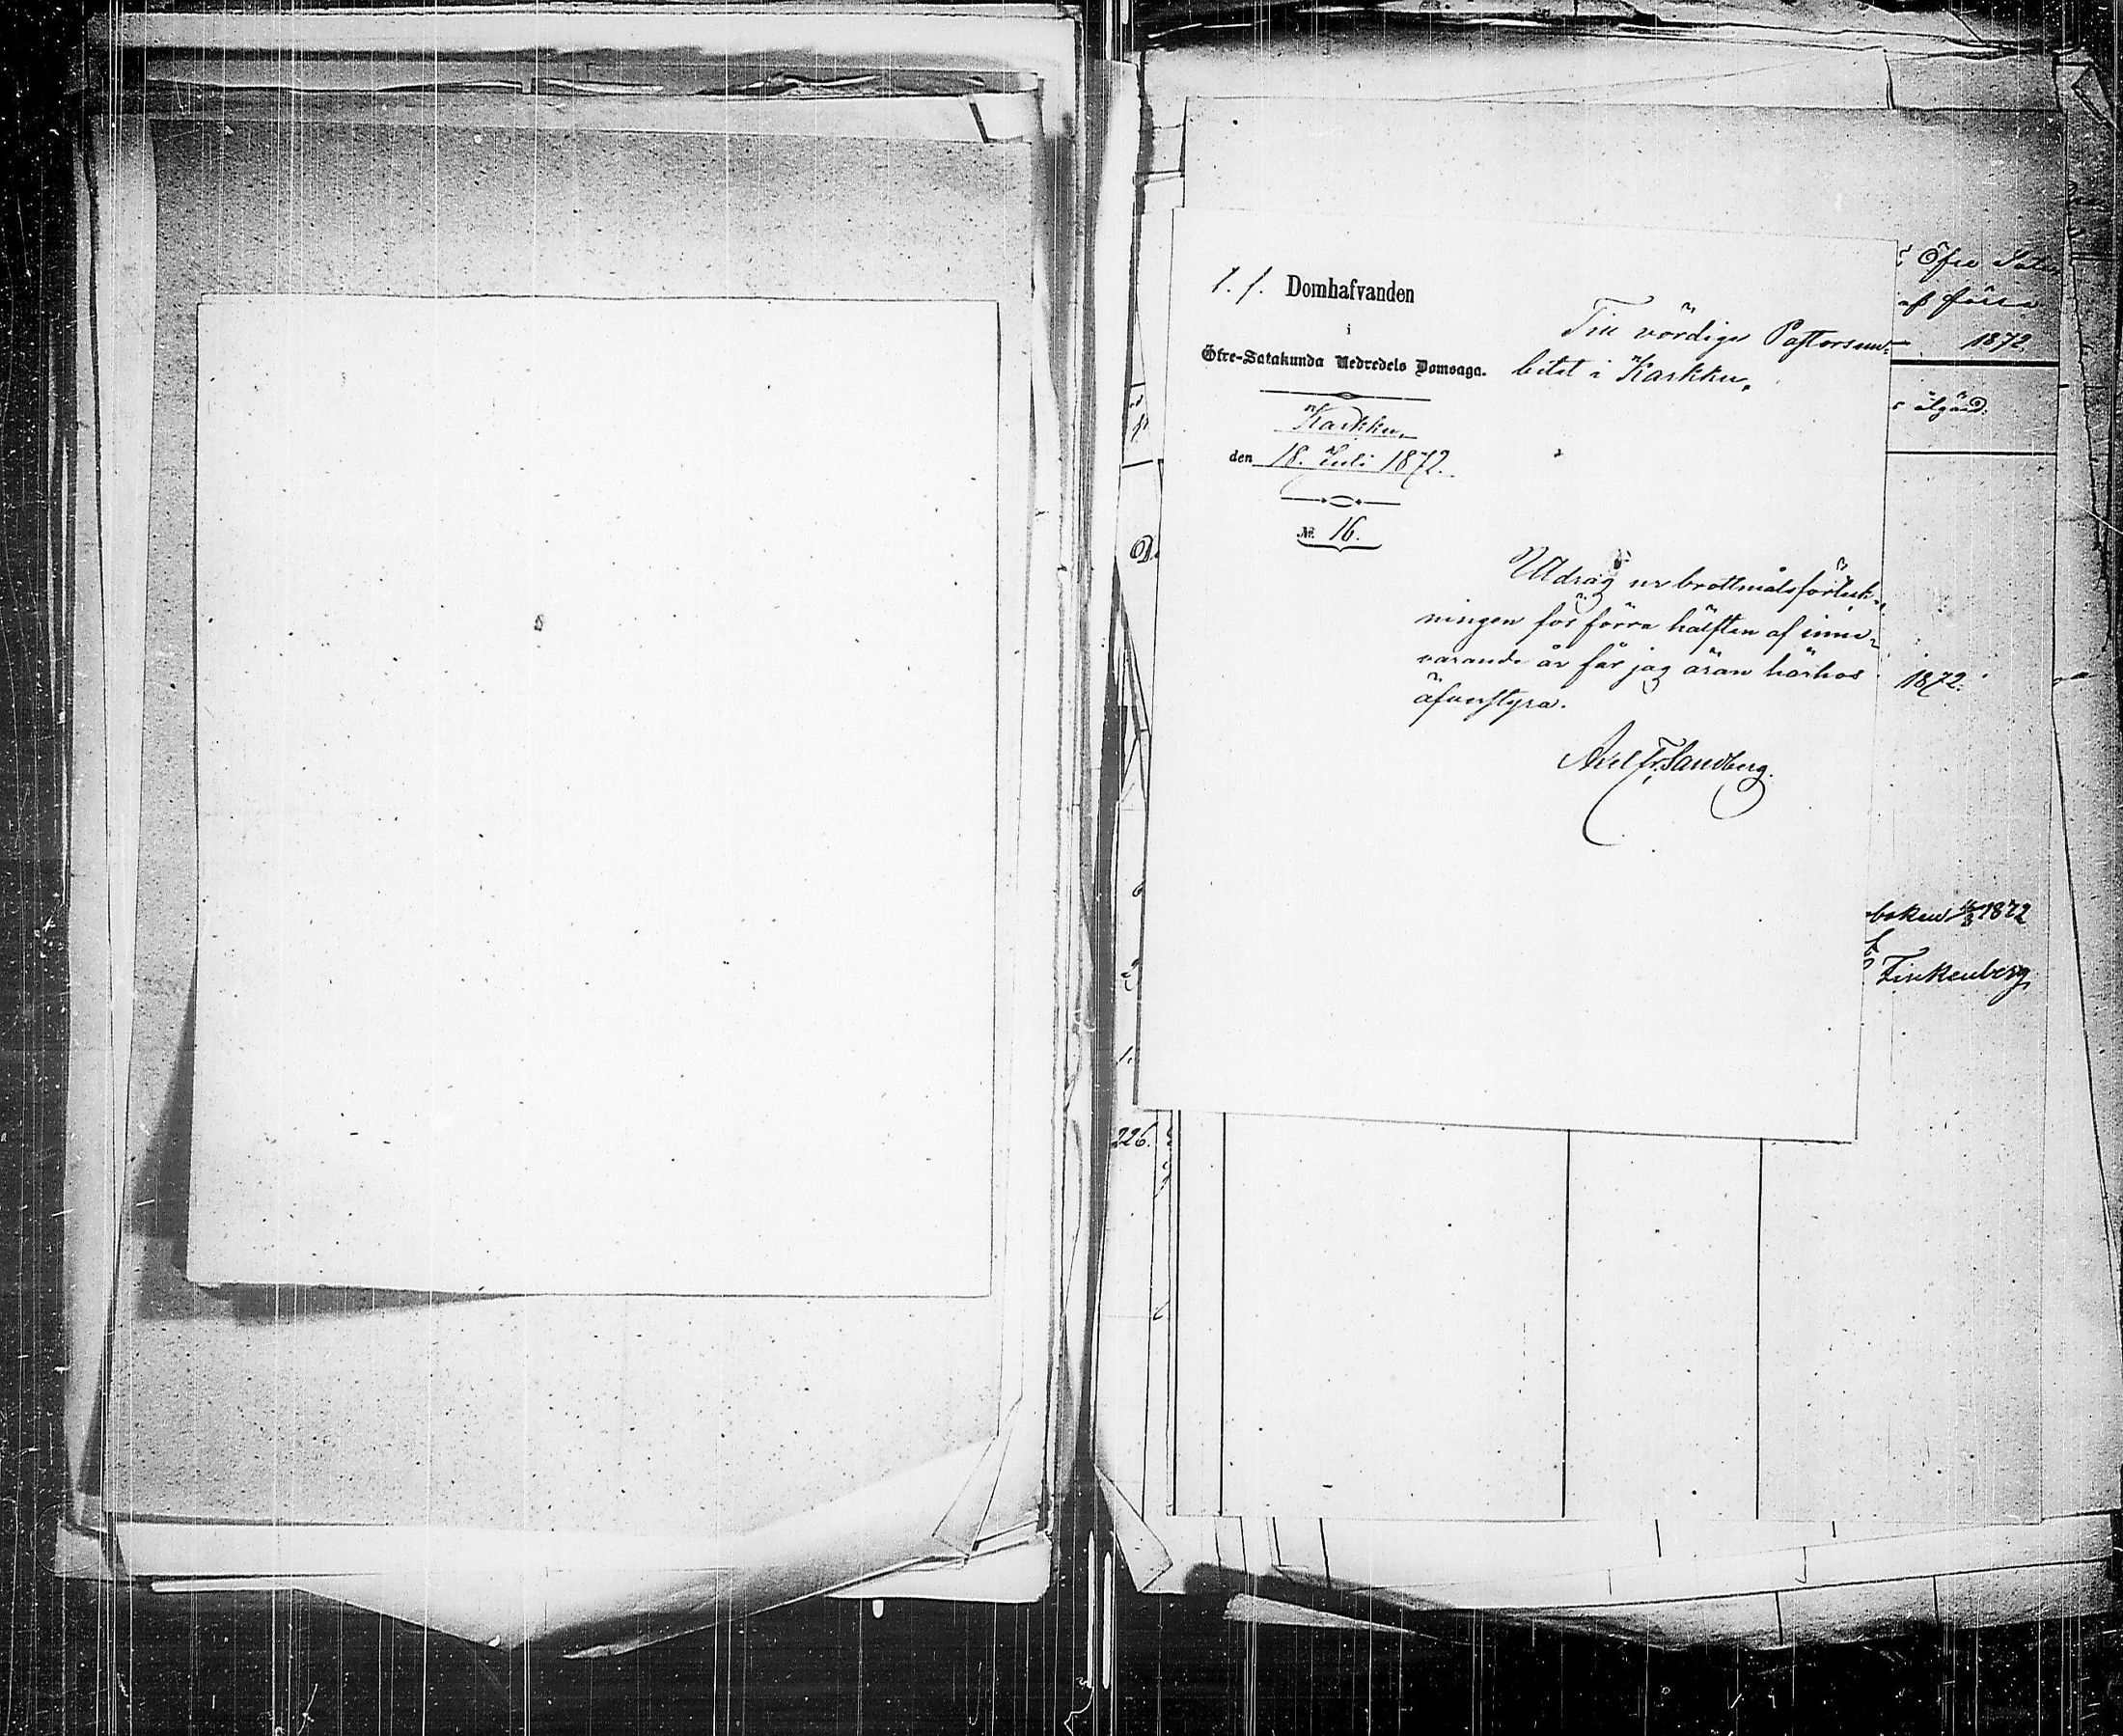 t. f. Domhafvanden
i
Öfre-Satakunda Nedredels Domsaga.
Karkku,
den 18. Juli 1872.
№ 16.
Till vördiga Pastorsem-
betet i Karkku.
Utdrag ur brottmålsförteck-
ningen för förra hälften af inne-
varande år får jag äran härhos
öfverstyra.
Axel Fr. Sandberg.
Öfre Sata
af förra
1872.
åtgärd:
1872.
boken 1872
Finkenberg
226.